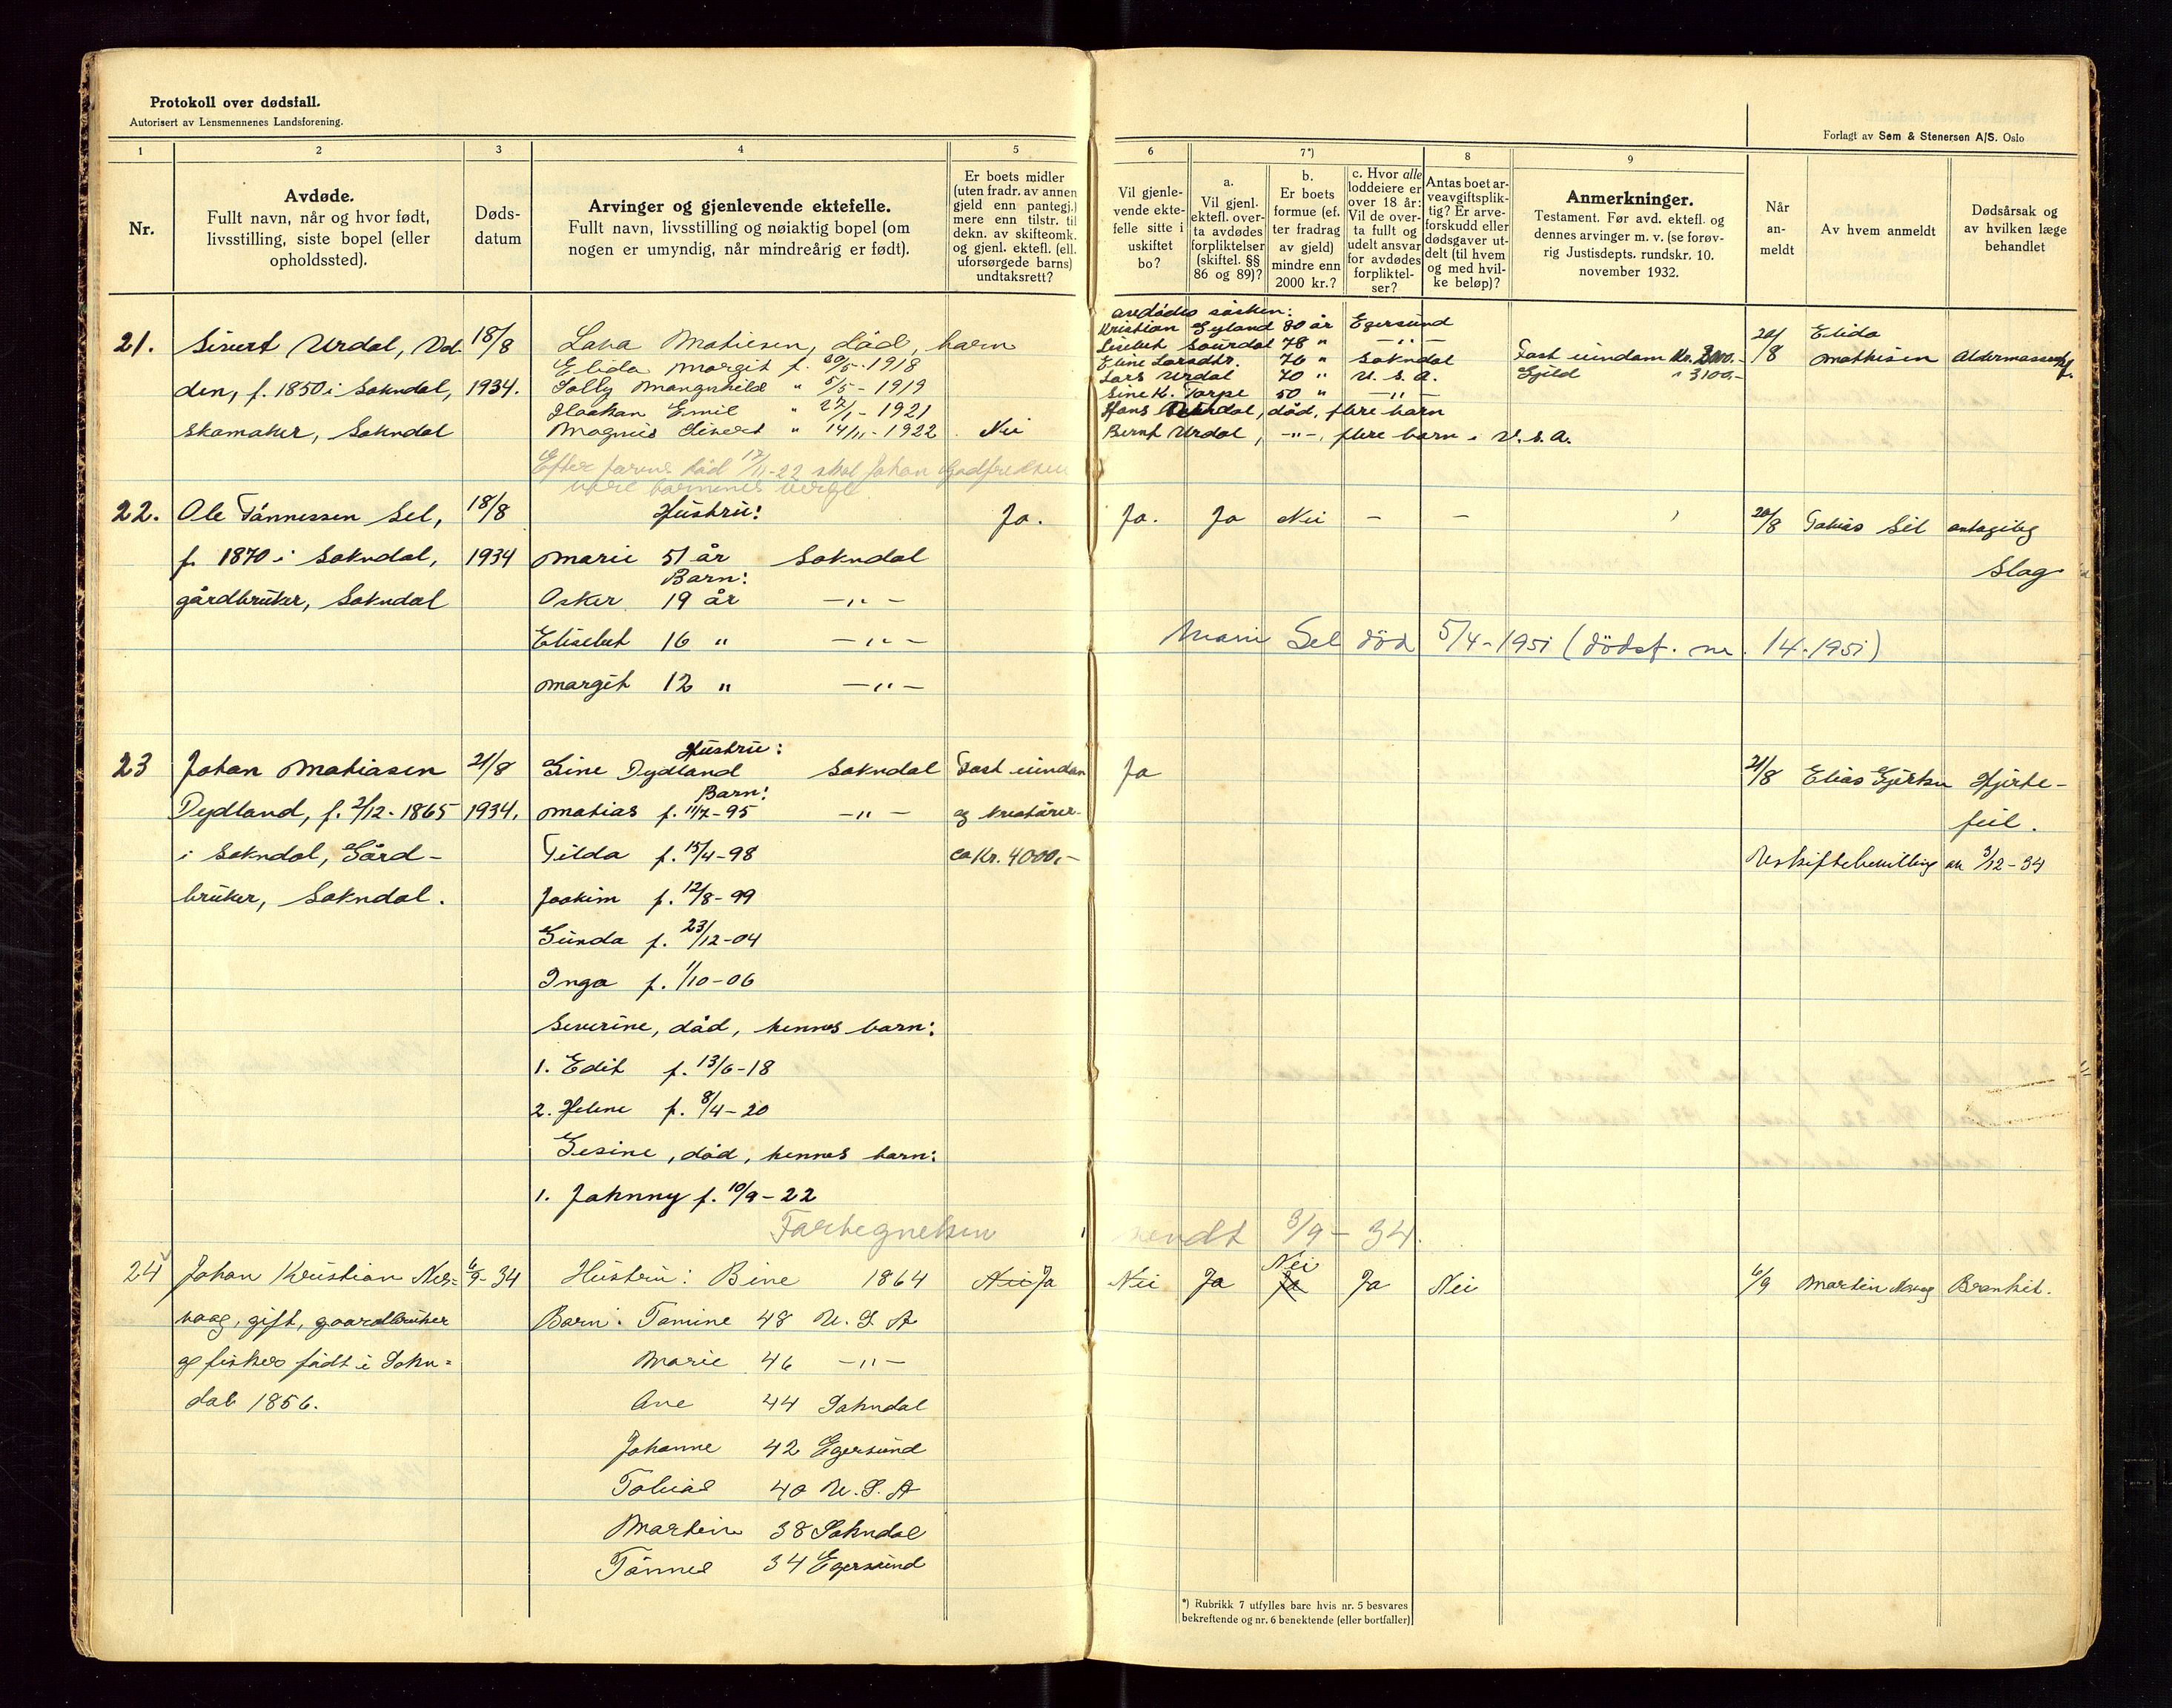 Protokoll over dødsfall.
Autorisert av Lensmennenes Landsforening.
Forlagt av Sem & Stenersen A/S. Oslo
1 2 3 4 5 6 7*) 8 9
Nr.
Avdøde.
Fullt navn, når og hvor født,
livsstilling, siste bopel (eller
opholdssted).
Døds-
datum
Arvinger og gjenlevende ektefelle.
Fullt navn, livsstilling og nøiaktig bopel (om
nogen er umyndig, når mindreårig er født).
Er boets midler
(uten fradr. av annen
gjeld enn pantegj.)
mere enn tilstr. til
dekn. av skifteomk.
og gjenl. ektefl. (ell.
uforsørgede barns)
undtaksrett?
Vil gjenle-
vende ekte-
felle sitte i
uskiftet
bo?
a.
Vil gjenl.
ektefl. over-
ta avdødes
forpliktelser
(skiftel. §§
86 og 89)?
b.
Er boets
formue (ef.
ter fradrag
av gjeld)
mindre enn
2000 kr.?
c. Hvor alle
loddeiere er
over 18 år:
Vil de over-
ta fullt og
udelt ansvar
for avdødes
forpliktel-
ser?
Antas boet ar-
veavgiftsplik-
tig? Er arve-
forskudd eller
dødsgaver ut-
delt (til hvem
og med hvil-
ke beløp)?
Anmerkninger.
Testament. Før avd. ektefl. og
dennes arvinger m. v. (se forøv-
rig Justisdepts. rundskr. 10.
november 1932.
Når
an-
meldt
Av hvem anmeldt
Dødsårsak og
av hvilken læge
behandlet
21.
Sivert Urdal,
den, f. 1850 i Sokndal,
skomaker, Sokndal
18/8
1934.
Lava Matiesen, død, barn
Elida Margit f. 20/5-1918
Solly Mangnhild " 5/5-1919
Haakan Emil " 27/1-1921
Magnus Sivert " 14/11-1922
Efter farens død 17/11-22 skal Johan Godfredsen
være barnenes verge
Nei
avdødes søsken:
Kristian Gyland 80 år Egersund
Lisebet 78 " -"-
Eline Larsdtr. 76 " Sokndal
Lars Urdal 70 " U.S.A.
Sine K. Torpe 50 " -"-
Hans Urdal, død, flere barn
Bernt Urdal, -"-, flere barn i U.S.A.
Fast eiendom Kr.
Gjeld " 3100,-
20/8
Elida
Mathisen
22.
Ole Tønnessen Sel,
f. 1870 i Sokndal,
gårdbruker, Sokndal
18/8
1934
Hustru:
Marie 51 år Sokndal
Barn:
Osker 19 år -"-
Elisebet 16 " -"-
Margit 12 " -"-
Ja.
Ja. Ja Nei - -
20/8 Tobias Sel antagelig
Slag
Marie Sel død 5/4-1951 (dødsf. nr. 14-1951)
23
Johan Matiasen
Dydland, f. 2/12-1865
i Sokndal, Gård-
bruker, Sokndal.
21/8
1934.
Hustru:
Sine Dydland Sokndal
Barn:
Matias f. 11/7-95 -"-
Tilda f. 15/4-98
Joakim f. 12/8-99
Gunda f. 23/12-04
Inga f. 1/10-06
Severine, død, hennes barn:
1. Edit f. 13/6-18
2. Helene f. 8/4-20
Gesine, død, hennes barn:
1. Johnny f. 10/9-22
Fast eiendom
og kreaturer
ca Kr. 4000,-
Ja
21/8 Elias Gjertsen Hjerte-
feil.
Uskiftebevilling av 3/12-34
Fortegnelsen sendt 3/9-34.
24
Johan Kristian Nes=
vaag, gift, gaardbruker
og fisker født i Sokn=
dal 1856.
6/9-34
Hustru: Bine 1864
Barn: Tomine 48 U.S.A
Marie 46 -"-
Ane 44 Sokndal
Johanne 42 Egersund
Tobias 40 U.S.A
Martin 38 Sokndal
Tønnes 34 Egersund
Nei Ja
Nei Ja Ja Nei Ja Nei
6/9 Martin Nesvag Bronkit.
*) Rubrikk 7 utfylles bare hvis nr. 5 besvares
bekreftende og nr. 6 benektende (eller bortfaller)